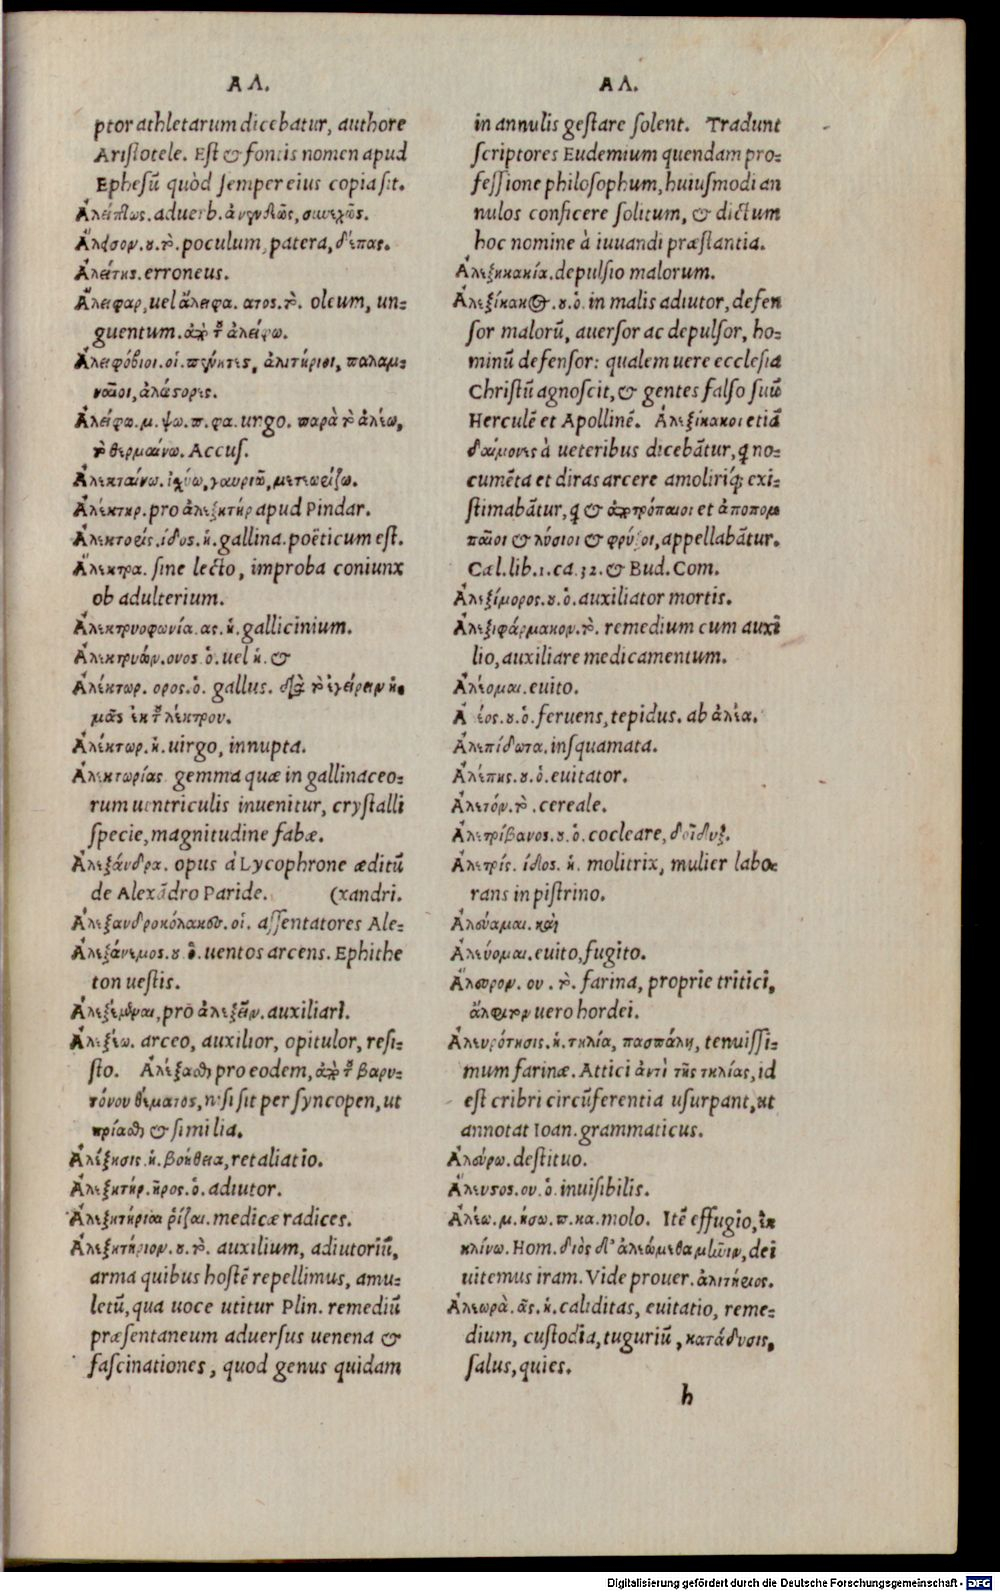 ΑΛ.
ptor athletarum dicebatur, authore
Aristotele. Est & fontis nomen apud
Ephesũ quòd semper eius copia sit.
Ἀλείπτως. aduerb. συνεχῶς.
Ἄλεισον. ου. τὸ. poculum, patera, δέπας.
Ἀλείτης. erroneus.
Ἄλειφαρ, uel ἄλειφα. ατος. τὸ. oleum, un-
guentum. ἀπὸ τοῦ ἀλείφω.
Ἀλειφόβιοι. οἱ. πένητες, ἀλιτήριοι, παλαμ-
ναῖοι, ἀλάστορες.
Ἀλείφω. μ. ψω. π. φα. ungo. παρὰ τὸ ἀλέω,
τὸ θερμαίνω. Accus.
Ἀλεκταίνω. ἰσχύω, γαυριῶ, μετεωρίζω.
Ἀλέκτηρ. pro ἀλεξητήρ apud Pindar.
Ἀλεκτορίς. ίδος. ἡ. gallina. poëticum est.
Ἄλεκτρα. sine lecto, improba coniunx
ob adulterium.
Ἀλεκτρυοφωνία. ας. ἡ. gallicinium.
Ἀλεκτρυών. ονος. ὁ. uel ἡ. &
Ἀλέκτωρ. ορος. ὁ. gallus. διὰ τὸ ἐγείρειν ἡ-
μᾶς ἐκ τοῦ λέκτρου.
Ἀλέκτωρ. ἡ. uirgo, innupta.
Ἀλεκτωρίας gemma quæ in gallinaceo-
rum uentriculis inuenitur, crystalli
specie, magnitudine fabæ.
Ἀλεξάνδρα. opus à Lycophrone æditũ
de Alexãdro Paride. (xandri.
Ἀλεξανδροκόλακες. οἱ. assentatores Ale-
Ἀλεξάνεμος. ου ὁ. uentos arcens. Ephithe
ton uestis.
Ἀλεξέμεναι, pro ἀλεξεῖν. auxiliari.
Ἀλεξέω. arceo, auxilior, opitulor, resi-
sto. Ἀλέξασθαι pro eodem, ἀπὸ τοῦ βαρυ-
τόνου θέματος, nisi sit per syncopen, ut
πρίασθαι & similia.
Ἀλέξησις. ἡ. βοήθεια, retaliatio.
Ἀλεξητήρ. ῆρος. ὁ. adiutor.
Ἀλεξητήριαι ῥίζαι. medicæ radices.
Ἀλεξητήριον. ου. τὸ. auxilium, adiutoriũ,
arma quibus hostẽ repellimus, amu-
letũ, qua uoce utitur Plin. remediũ
præsentaneum aduersus uenena &
fascinationes, quod genus quidam
ΑΛ.
in annulis gestare solent. Tradunt
scriptores Eudemium quendam pro-
fessione philosophum, huiusmodi an
nulos conficere solitum, & dictum
hoc nomine à iuuandi præstantia.
Ἀλεξικακία. depulsio malorum.
Ἀλεξίκακος. ου. ὁ. in malis adiutor, defen
sor malorũ, auersor ac depulsor, ho-
minũ defensor: qualem uere ecclesia
Christũ agnoscit, & gentes falso suũ
Herculẽ et Apollinẽ. Ἀλεξίκακοι etiã
δαίμονες à ueteribus dicebãtur, q̃ no-
cumẽta et diras arcere amoliriq́; exi-
stimabãtur, q̃ & ἀποτρόπαιοι et ἀποπομ
παῖοι & λύσιοι & φρύξοι, appellabãtur.
Cæl. lib. 1. ca. 32. & Bud. Com.
Ἀλεξίμορος. ου. ὁ. auxiliator mortis.
Ἀλεξιφάρμακον. τὸ. remedium cum auxi
lio, auxiliare medicamentum.
Ἀλέομαι. euito.
Ἀ εος. ου. ὁ. feruens, tepidus. ab ἀλέα.
Ἀλεπίδωτα. insquamata.
Ἀλέπης. ου. ὁ. euitator.
Ἀλετόν. τὸ. cereale.
Ἀλετρίβανος. ου. ὁ. cocleare, δοῖδυξ.
Ἀλετρίς. ίδος. ἡ. molitrix, mulier labo
rans in pistrino.
Ἀλεύαμαι. καὶ
Ἀλεύομαι. euito, fugito.
Ἄλευρον. ου. τὸ. farina, proprie tritici,
ἄλφιτον uero hordei.
Ἀλευρότησις. ἡ. τηλία, πασπάλη, tenuissi-
mum farinæ. Attici ἀντὶ τῆς τηλίας, id
est cribri circũferentia usurpant, ut
annotat Ioan. grammaticus.
Ἀλεύρω. destituo.
Ἄλευσος. ου. ὁ. inuisibilis.
Ἀλέω. μ. ήσω. π. κα. molo. Itẽ effugio, ἐκ
κλίνω. Hom. διὸς δ' ἀλεώμεθα μῆνιν, dei
uitemus iram. Vide prouer. ἀλιτήριος.
Ἀλεωρὰ. ᾶς. ἡ. caliditas, euitatio, reme-
dium, custodia, tuguriũ, κατάδυσις,
salus, quies.
h
Digitalisierung gefördert durch die Deutsche Forschungsgemeinschaft - DFG